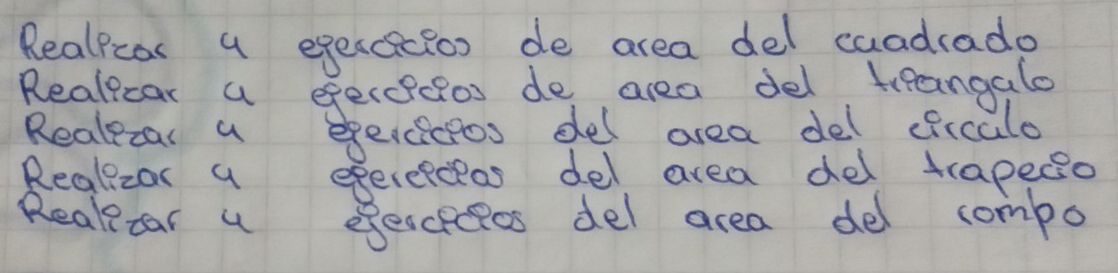 Realizar 4 ejercicios de area del cuadrado
Realizar 4 ejercicios de area del triangulo
Realizar 4 ejercicios del area del circulo
Realizar 4 ejercicios del area del trapecio
Realizar 4 ejercicios del area del rompo